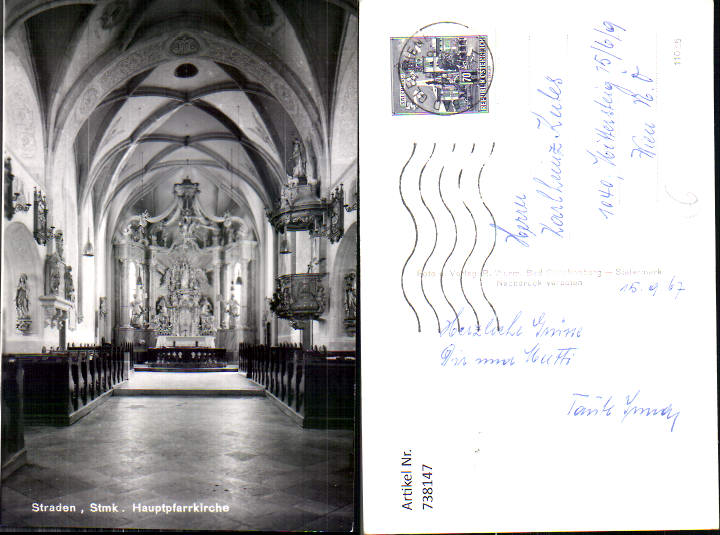 Straden, Stmk. Hauptpfarrkirche
REPUBLIK ÖSTERREICH
70
Herrn
Karlheinz
1040, 15/6/9
Wien
Foto u. Verlag R. Wurm, Bad Gleichenberg — Steiermark
Nachdruck verboten
15. 9. 67
Herzliche Grüsse
Dir und Mutti
Tante
Artikel Nr.
738147